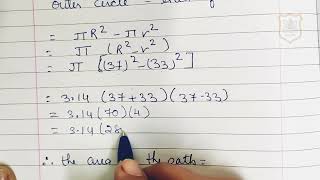 outer circle -
= πR² - πr²
= π (R² - r²)
= π [(37)² - (33)²]
= 3.14 (37+33)(37-33)
= 3.14 (70)(4)
= 3.14 (28
∴ the area the path =